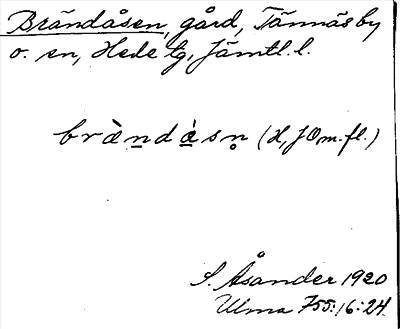 Brändåsen, gård, Tännäs by
o. sn, Hede tg, Jämtl. l.
brä̀ndå̀sn̥ (H, JO, m. fl.)
S. Åsander 1920
Ulma 755:16:24.